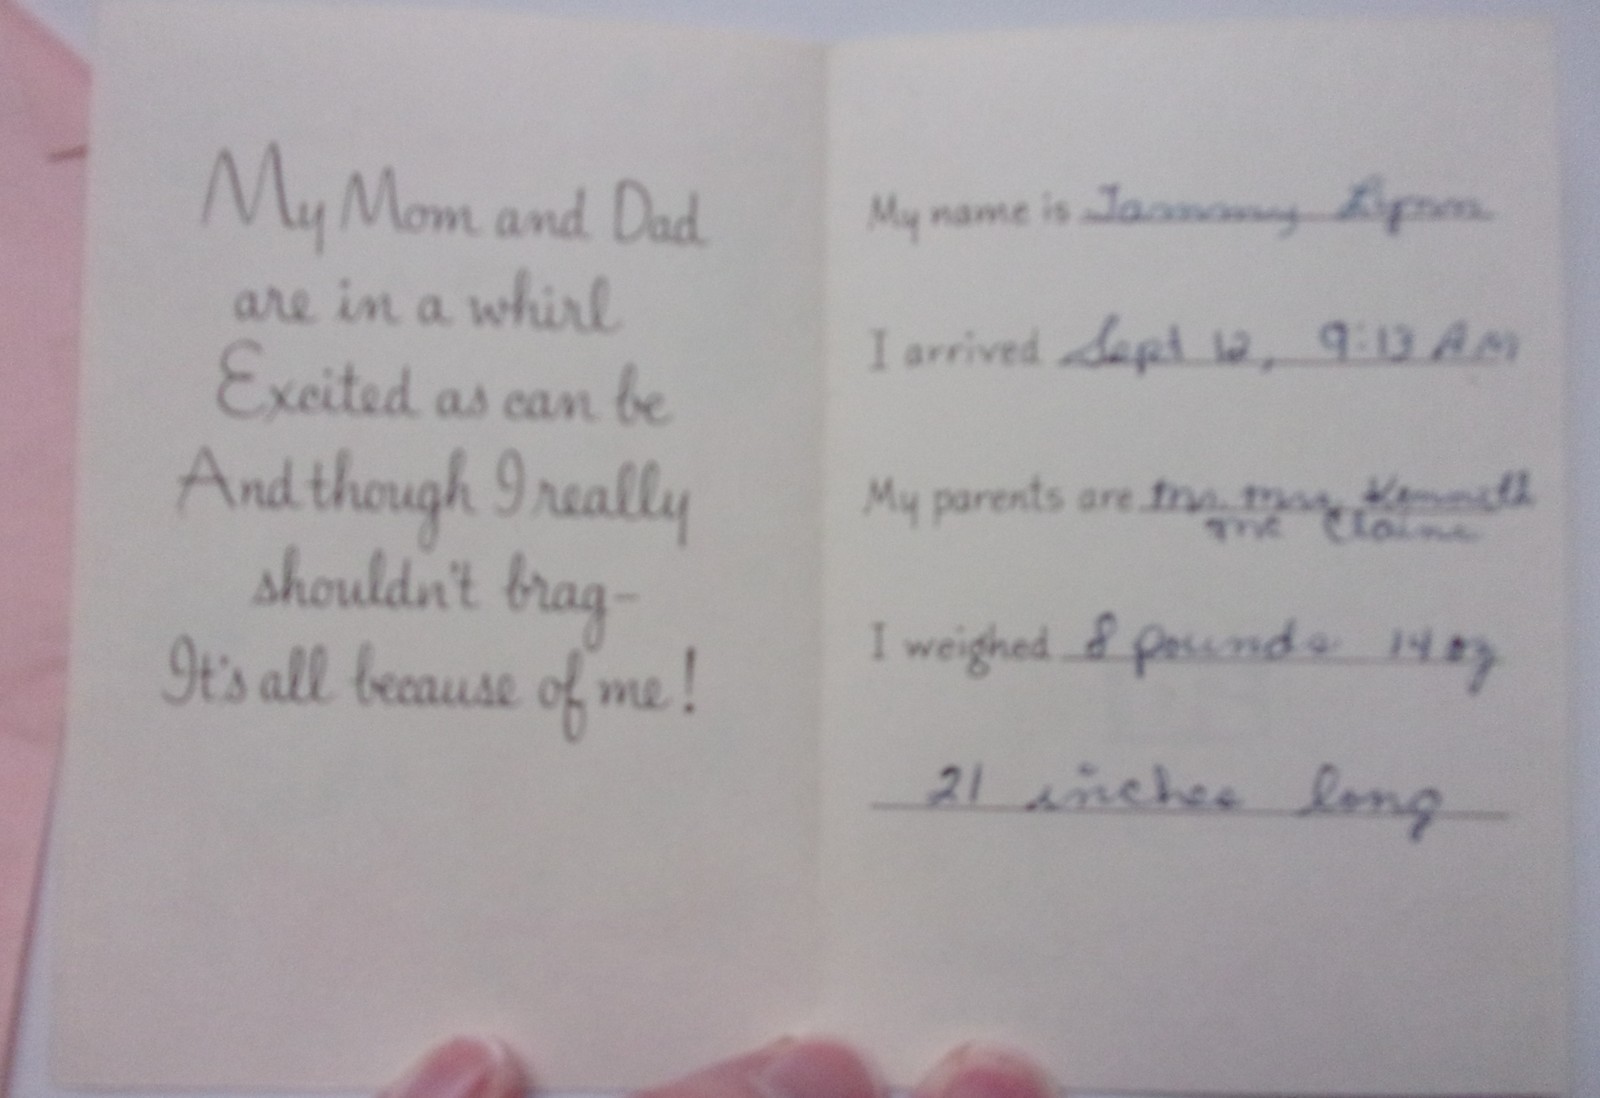 My Mom and Dad
are in a whirl
Excited as can be
And though I really
shouldn't brag-
It's all because of me!
My name is Tammy Lynn
I arrived Sept 12, 9:13 AM
My parents are Mr. Mrs. Kenneth
Mc Claine
I weighed 8 pounds 14 oz
21 inches long